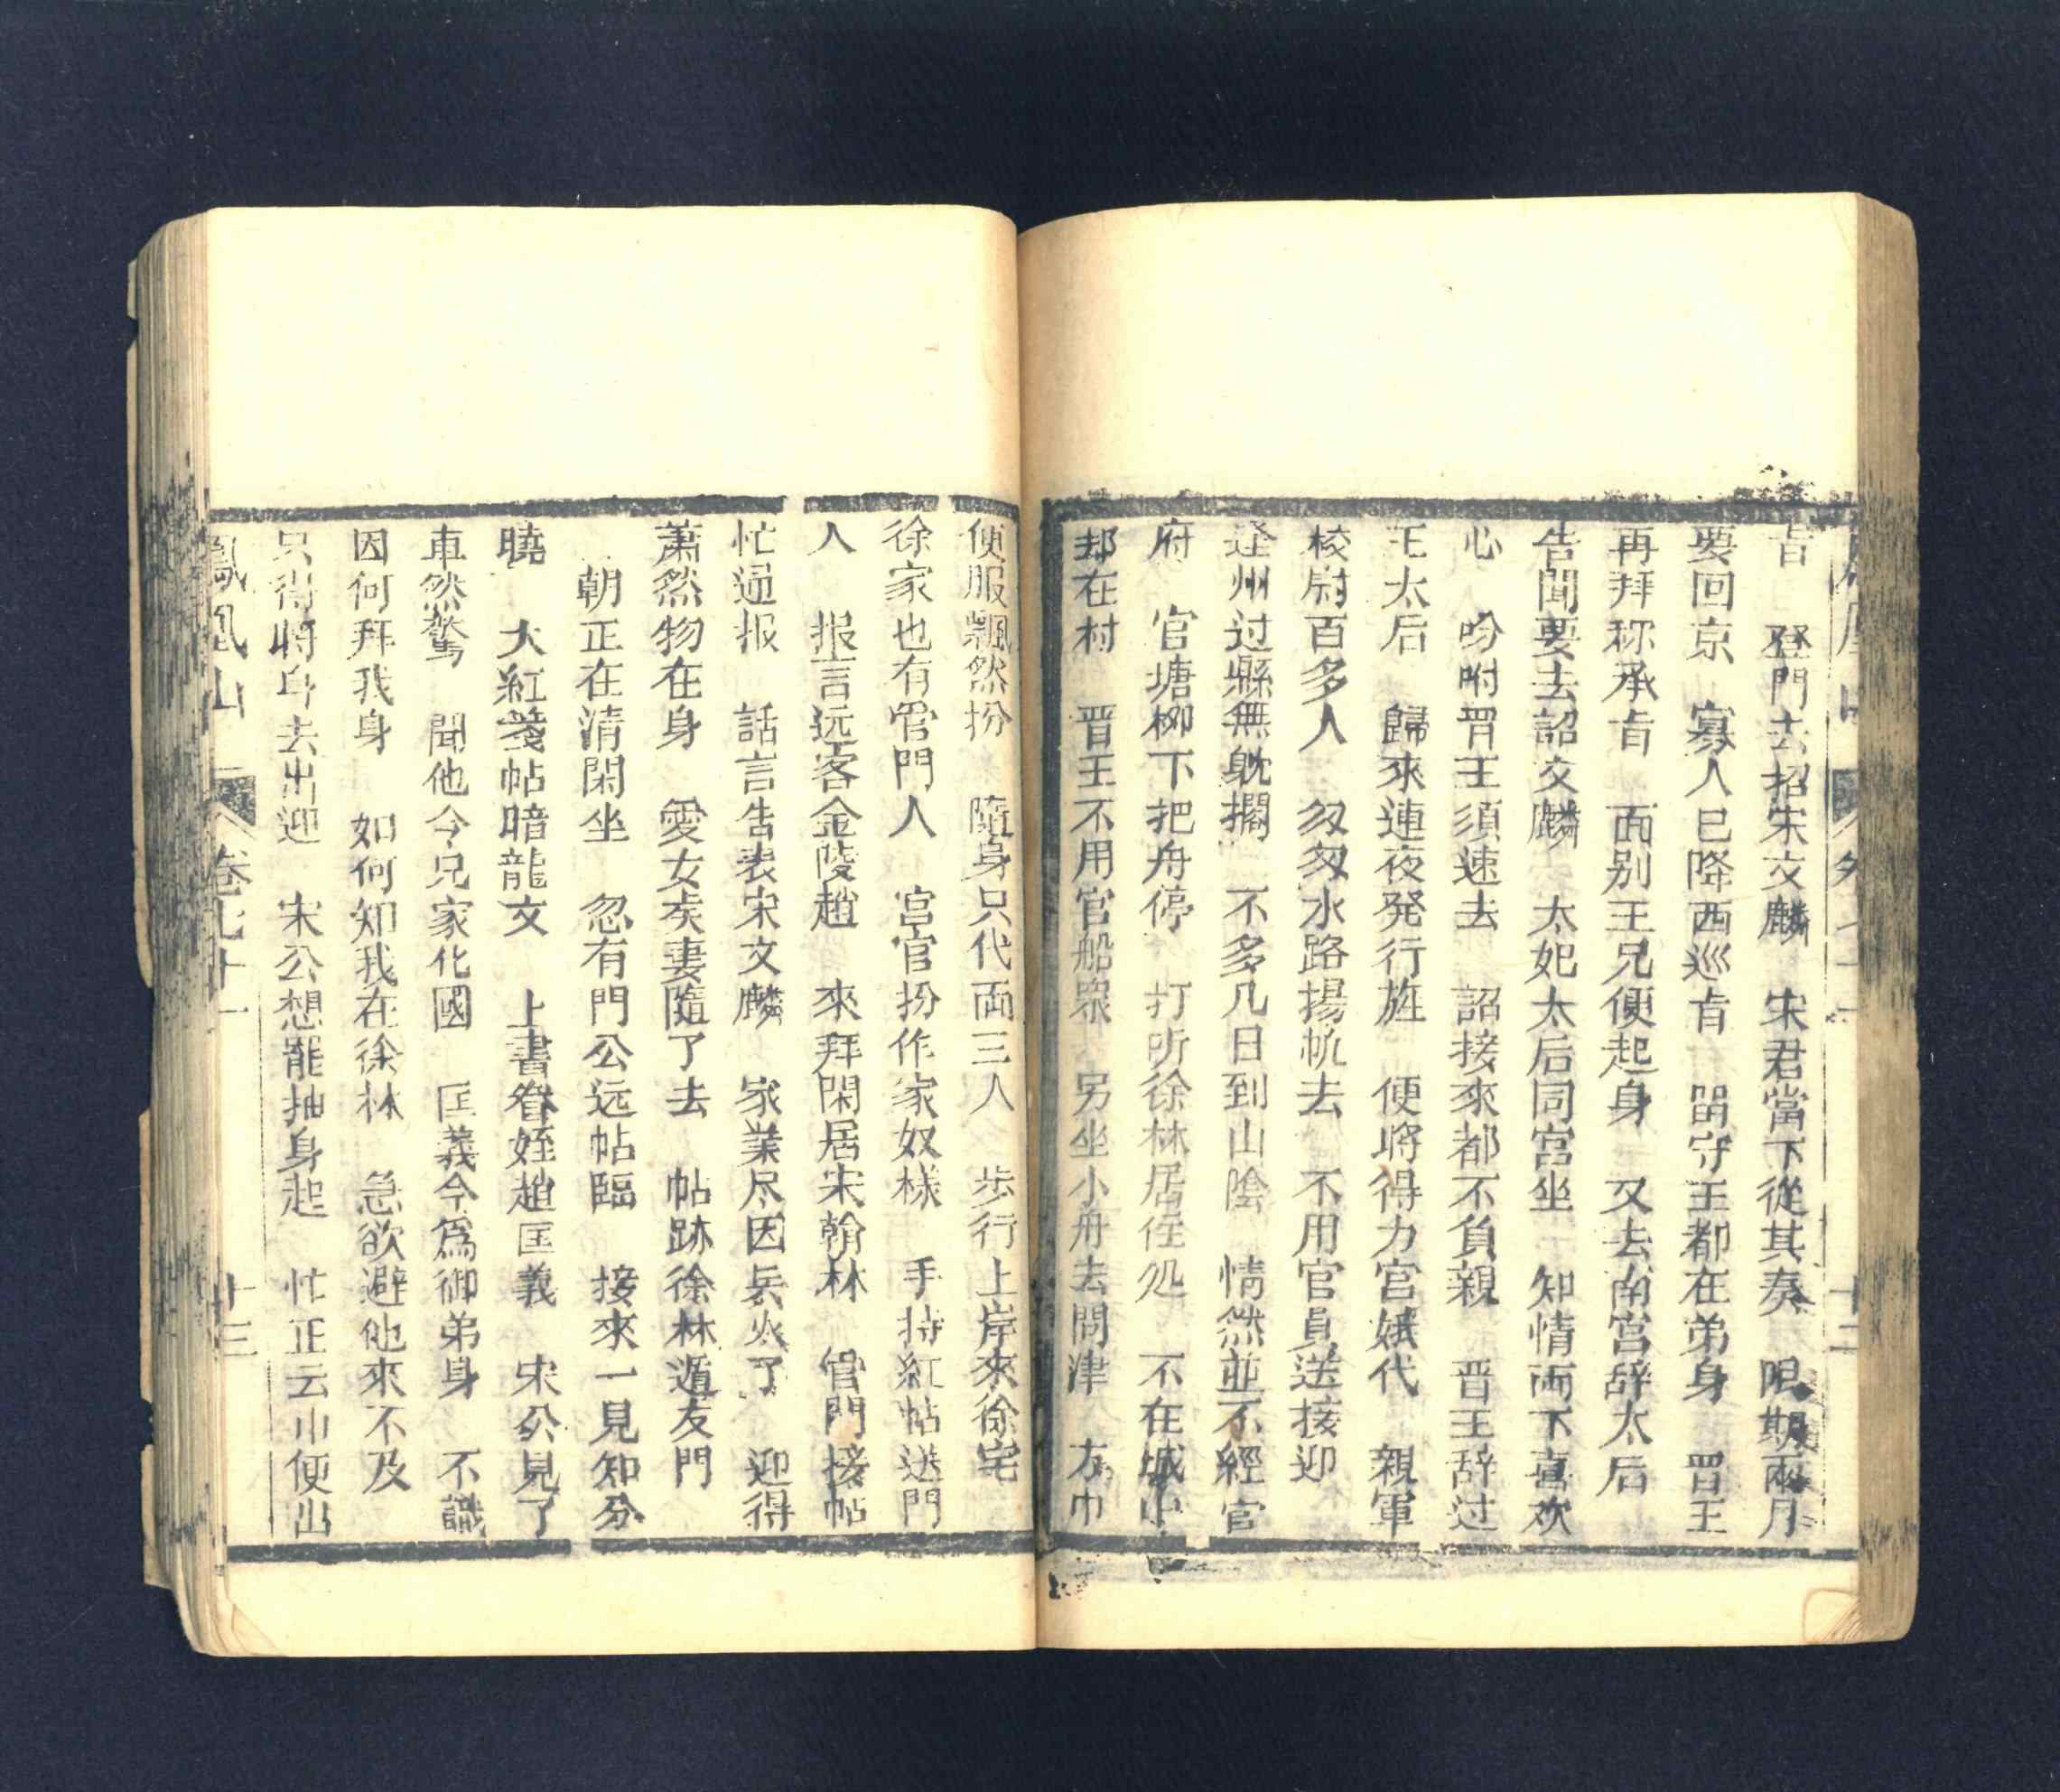 旨　登門去招宋文麟　宋君當下從其奏　限期兩月
要回京　寡人已降西巡旨　留守王都在弟身　晋王
再拜称承旨　面别王兄便起身　又去南宫辞太后
告聞要去詔文麟　太妃太后同宫坐　知情両下喜欢
心　吩咐晋王須速去　詔接來都不負親　晋王辞过
王太后　歸來連夜発行旌　便將得力宫娥代　親軍
校尉百多人　匆匆水路揚帆去　不用官員送接迎
逢州过縣無躭擱　不多几日到山陰　情然並不經官
府　官塘栁下把舟停　打听徐林居住処　不在城中
却在村　晋王不用官船衆　另坐小舟去問津　方巾
便服飄然扮　隨身只代両三人　步行上岸來徐宅
徐家也有管門人　宫官扮作家奴樣　手持紅帖送門
人　报言远客金陵趙　來拜閑居宋翰林　管門接帖
忙通报　話言告表宋文麟　家業尽因兵火了　迎得
蕭然物在身　愛女夫妻隨了去　帖跡徐林遁友門
朝正在清閑坐　忽有門公远帖臨　接來一見知分
曉　大紅箋帖暗龍文　上書眷姪趙匡義　宋公見了
車然驚　聞他令兄家化國　匡義今爲御弟身　不識
因何拜我身　如何知我在徐林　急欲避他來不及
只得將身去出迎　宋公想罷抽身起　忙正云巾便出
鳳凰山　卷七十一　十三